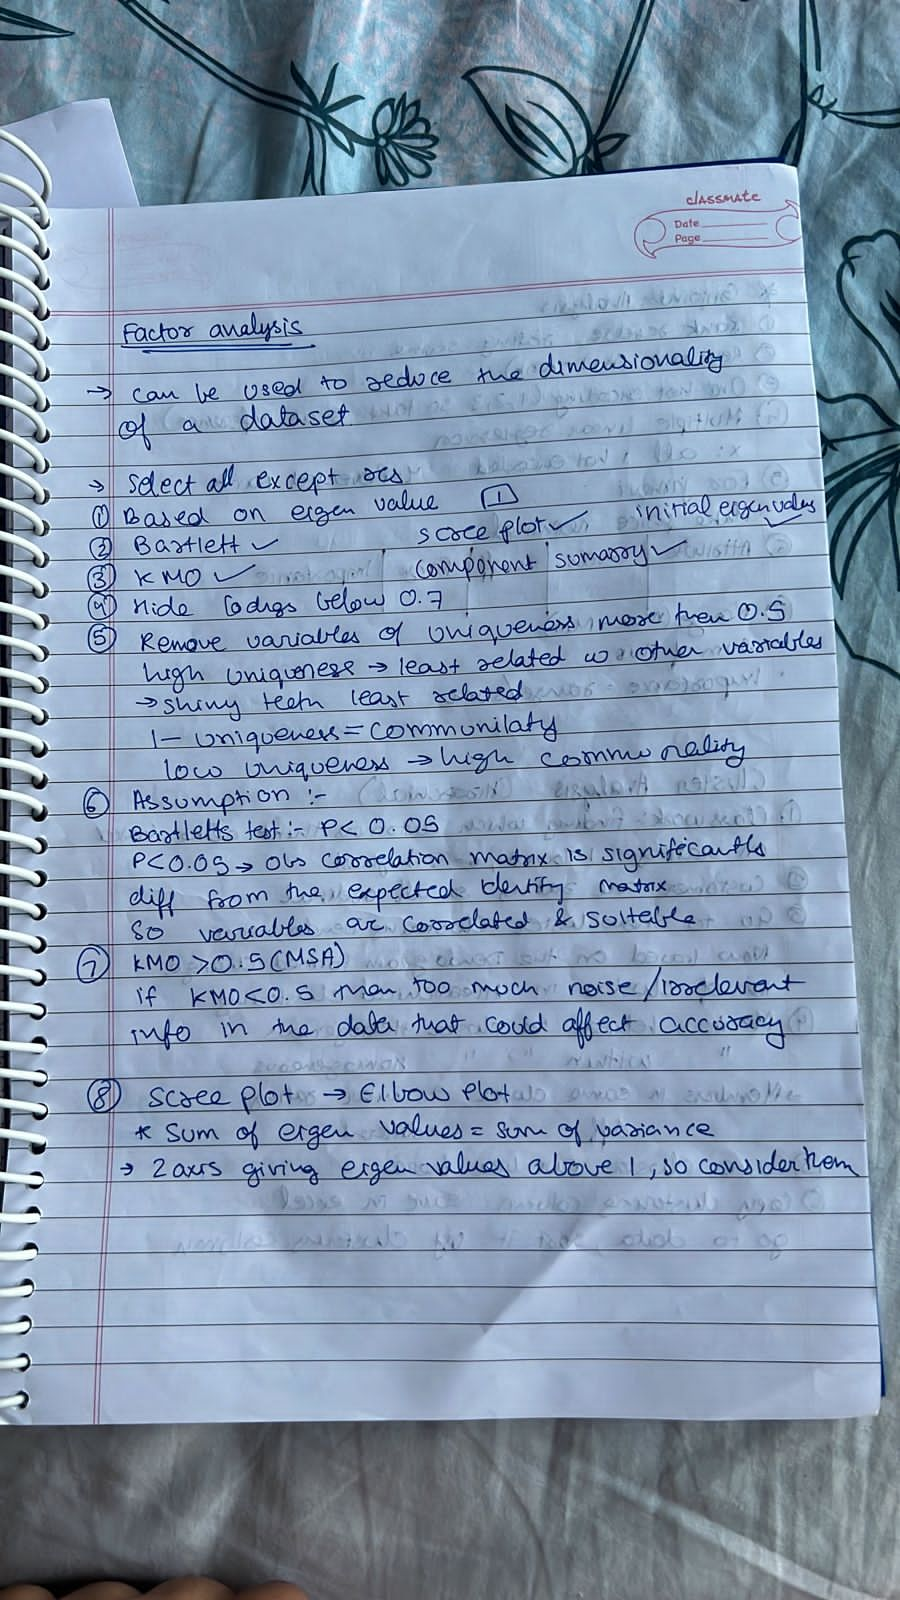 classmate
Date
Page
Factor analysis
→ can be used to reduce the dimensionality
of a dataset
→ Select all except
① Based on eigen value 1
② Bartlett ✓ scree plot ✓ initial eigen values ✓
③ KMO ✓ component sumasry ✓
④ Hide below 0.7
⑤ Remove variables of uniqueness more then 0.5
high uniqueness → least related w other variables
→ shiny teeth least related
1 - uniqueness = communilaty
low uniqueness → high communality
⑥ Assumption :-
Bartletts test :- P< 0.05
P<0.05 → obs correlation matrix is significantls
diff from the expected identity matrix
so variables are correlated & suitable
⑦ KMO >0.5 (MSA)
if KMO<0.5 then too much noise / irrelevant
info in the data that could affect accuracy
⑧ scree plot → Elbow plot
* Sum of eigen values = sum of variance
→ 2 axis giving eigen values above 1, so consider them